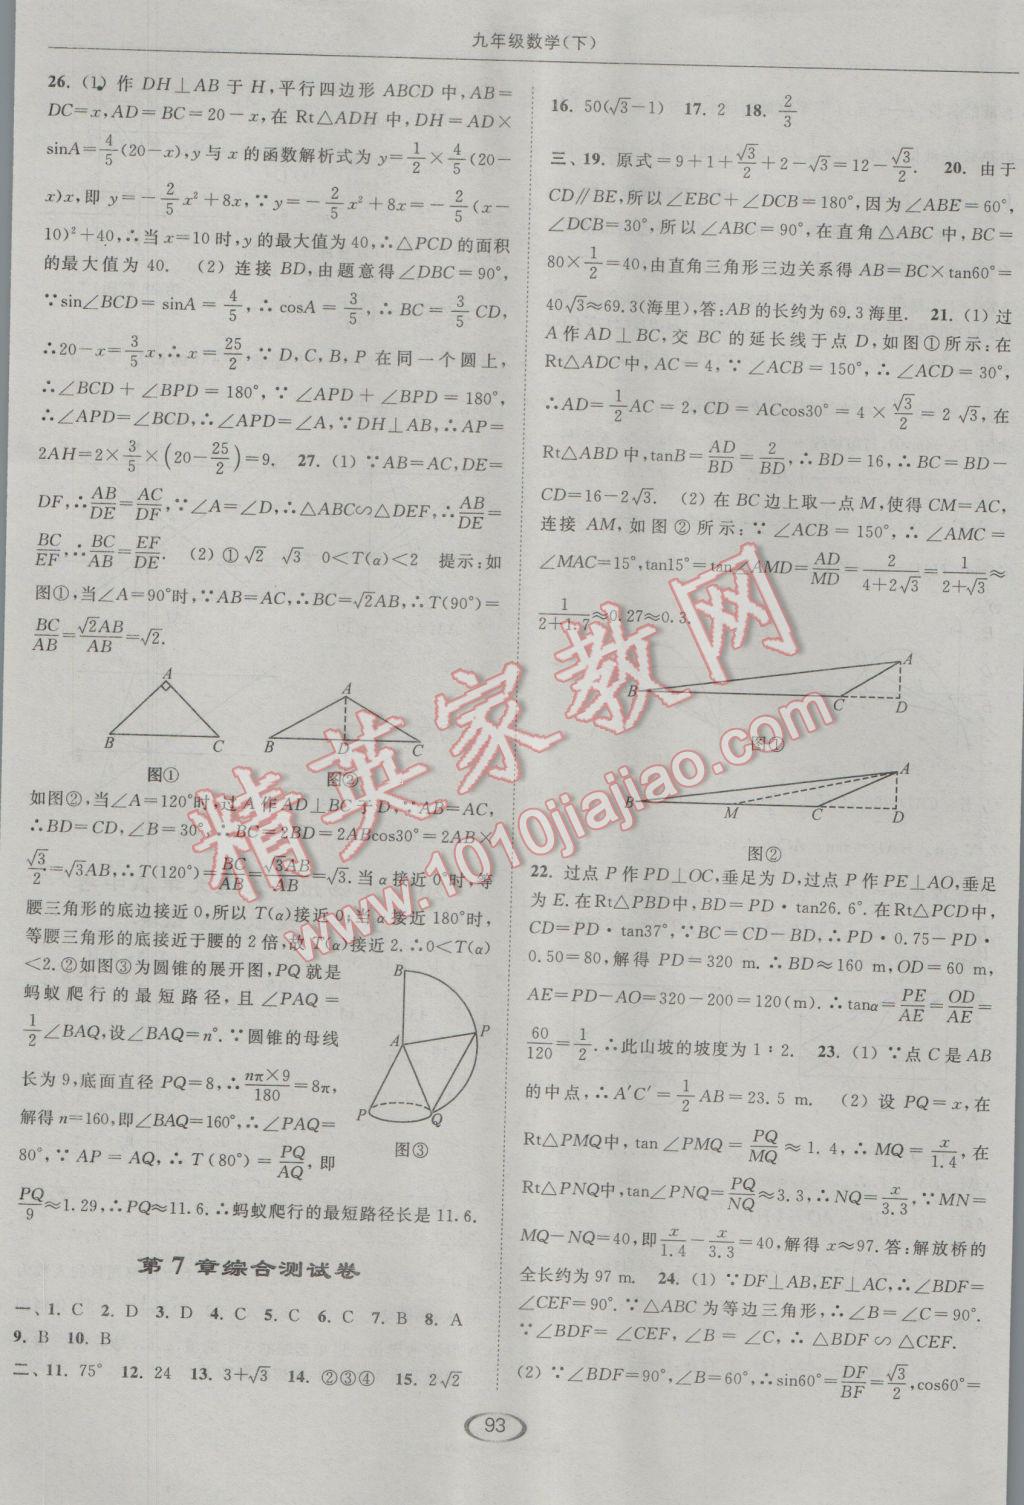 九年级数学(下)
26. (1) 作 DH⊥AB 于 H,平行四边形 ABCD 中,AB=
DC=x,AD=BC=20-x,在 Rt△ADH 中,DH=AD×
sinA=4/5(20-x),y 与 x 的函数解析式为 y=1/2×4/5(20-
x)x,即 y=-2/5x²+8x,∵y=-2/5x²+8x=-2/5(x-
10)²+40,∴当 x=10时,y 的最大值为 40,∴△PCD 的面积
的最大值为 40. (2) 连接 BD,由题意得∠DBC=90°,
∵sin∠BCD=sinA=4/5,∴cosA=3/5,∴BC=3/5CD,
∴20-x=3/5x,∴x=25/2,∵D,C,B,P 在同一个圆上,
∴∠BCD+∠BPD=180°,∵∠APD+∠BPD=180°,
∴∠APD=∠BCD,∴∠APD=∠A,∵DH⊥AB,∴AP=
2AH=2×3/5×(20-25/2)=9. 27. (1) ∵AB=AC,DE=
DF,∴AB/DE=AC/DF,∵∠A=∠D,∴△ABC∽△DEF,∴AB/DE=
BC/EF,∴BC/AB=EF/DE. (2) ①√2 √3 0<T(α)<2 提示:如
图①,当∠A=90°时,∵AB=AC,∴BC=√2AB,∴T(90°)=
BC/AB=√2AB/AB=√2.
A
B
C
图①
A
B
D
C
图②
如图②,当∠A=120°时,过 A 作 AD⊥BC 于 D,∵AB=AC,
∴BD=CD,∠B=30°,∴BC=2BD=2ABcos30°=2AB×
√3/2=√3AB,∴T(120°)=BC/AB=√3AB/AB=√3.当α接近0°时,等
腰三角形的底边接近 0,所以 T(α)接近 0;当 α 接近 180°时,
等腰三角形的底接近于腰的 2 倍,故 T(α)接近 2.∴0<T(α)
<2.②如图③为圆锥的展开图,PQ 就是
蚂蚁爬行的最短路径,且∠PAQ=
1/2∠BAQ,设∠BAQ=n°.∵圆锥的母线
长为 9,底面直径 PQ=8,∴nπ×9/180=8π,
解得 n=160,即∠BAQ=160°,∴∠PAQ=
80°,∵AP=AQ,∴T(80°)=PQ/AQ,即
PQ/9≈1.29,∴PQ≈11.6.∴蚂蚁爬行的最短路径长是 11.6.
B
A
P
P
Q
图③
第 7 章综合测试卷
一、1. C 2. D 3. D 4. C 5. C 6. C 7. B 8. A
9. B 10. B
二、11. 75° 12. 24 13. 3+√3 14. ②③④ 15. 2√2
16. 50(√3-1) 17. 2 18. 2/3
三、19. 原式=9+1+√3/2+2-√3=12-√3/2. 20. 由于
CD∥BE,所以∠EBC+∠DCB=180°,因为∠ABE=60°,
∠DCB=30°,所以∠ABC=90°,在直角△ABC 中,BC=
80×1/2=40,由直角三角形三边关系得 AB=BC×tan60°=
40√3≈69.3(海里),答:AB 的长约为 69.3 海里. 21. (1) 过
A 作 AD⊥BC,交 BC 的延长线于点 D,如图①所示:在
Rt△ADC 中,AC=4,∵∠ACB=150°,∴∠ACD=30°,
∴AD=1/2AC=2,CD=ACcos30°=4×√3/2=2√3,在
Rt△ABD 中,tanB=AD/BD=2/BD,∴BD=16,∴BC=BD-
CD=16-2√3. (2) 在 BC 边上取一点 M,使得 CM=AC,
连接 AM,如图②所示:∵∠ACB=150°,∴∠AMC=
∠MAC=15°,tan15°=tan∠AMD=AD/MD=2/(4+2√3)=1/(2+√3)≈
1/(2+1.7)≈0.27≈0.3.
A
B
C
D
图①
A
B
M
C
D
图②
22. 过点 P 作 PD⊥OC,垂足为 D,过点 P 作 PE⊥AO,垂足
为 E.在 Rt△PBD 中,BD=PD·tan26.6°.在 Rt△PCD 中,
CD=PD·tan37°,∵BC=CD-BD,∴PD·0.75-PD·
0.50=80,解得 PD=320 m.∴BD≈160 m,OD=60 m,
AE=PD-AO=320-200=120(m).∴tanα=PE/AE=OD/AE=
60/120=1/2.∴此山坡的坡度为 1∶2. 23. (1) ∵点 C 是 AB
的中点,∴A′C′=1/2AB=23.5 m. (2) 设 PQ=x,在
Rt△PMQ中,tan∠PMQ=PQ/MQ≈1.4,∴MQ=x/1.4,在
Rt△PNQ中,tan∠PNQ=PQ/NQ≈3.3,∴NQ=x/3.3,∵MN=
MQ-NQ=40,即x/1.4-x/3.3=40,解得 x≈97.答:解放桥的
全长约为 97 m. 24. (1) ∵DF⊥AB,EF⊥AC,∴∠BDF=
∠CEF=90°.∵△ABC 为等边三角形,∴∠B=∠C=90°.
∵∠BDF=∠CEF,∠B=∠C,∴△BDF∽△CEF.
(2) ∵∠BDF=90°,∠B=60°,∴sin60°=DF/BF=√3/2,cos60°=
93
精英家教网
www.1010jiajiao.com